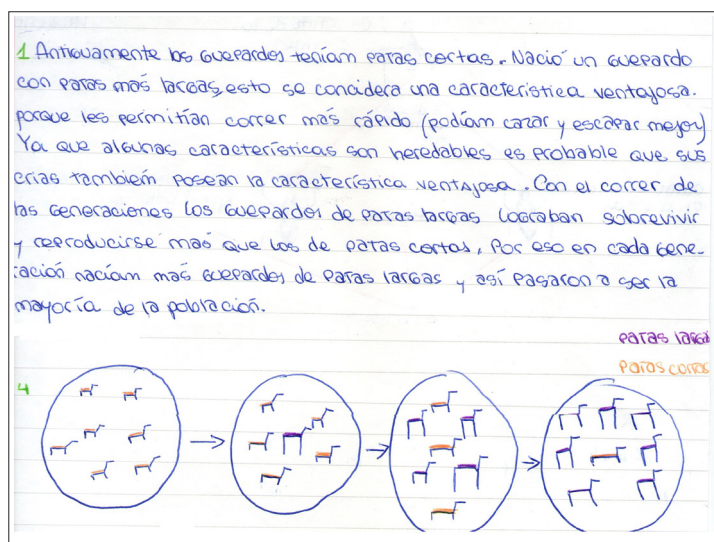 1 Antiguamente los guepardos tenían patas cortas. Nació un guepardo
con patas más largas, esto se concidera una característica ventajosa.
porque les permitían correr más rápido (podíam cazar y escapar mejor)
Ya que algunas características son heredables es probable que sus
crías tambieín posean la característica ventajosa. Con el correr de
las generaciones los guepardos de patas largas lograban sobrevivir
y reproducirse más que los de patas cortas, Por eso en cada gene-
ración nacíam más guepardos de Patas largas y así pasaron a ser la
mayoría de la población.
patas largas
Patas cortas
4